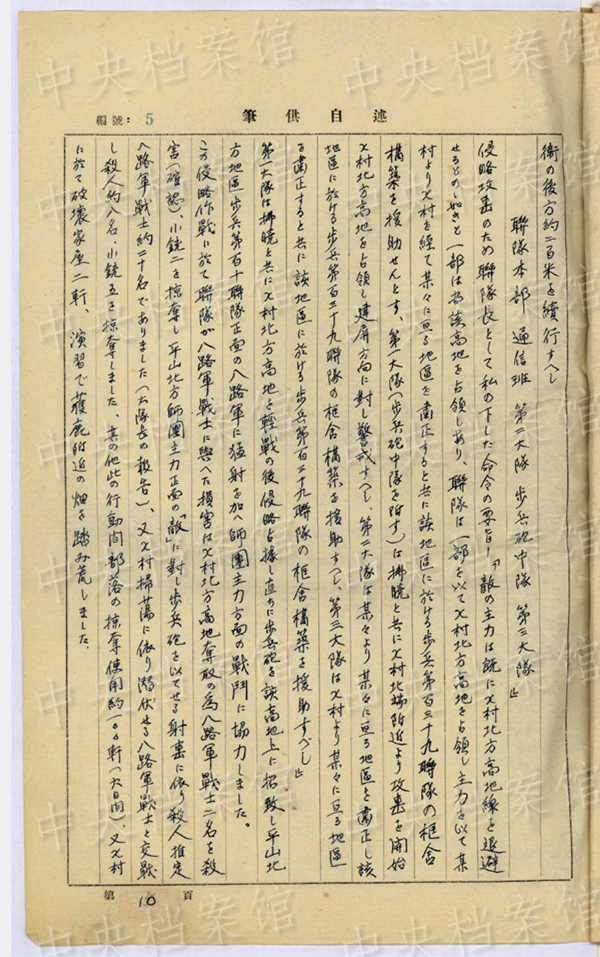 中央档案馆
編號：5
筆供自述
衛の後方約二百米を続行すべし
聯隊本部 通信班 第二大隊 歩兵砲中隊 第三大隊」
侵略攻撃のため聯隊長として私の下した命令の要旨ー「敵の主力は既にX村北方高地線を退避
せるものゝ如きも一部は尚該高地を占領しあり、聯隊は一部を以てX村北方高地を占領し主力を以て某
村よりX村を経て某々に亘る地區を粛正すると共に該地區に於ける歩兵第百三十九聯隊の框舎
構築を援助せんとす、第一大隊(歩兵砲中隊を附す)は拂暁と共にX村北端附近より攻撃を開始
X村北方高地を占領し建屏方向に対し警戒すべし、第二大隊は某々より某々に亘る地區を粛正し該
地區に於ける歩兵第百三十九聯隊の框舎構築を援助すべし、第三大隊はX村より某々に亘る地區
を粛正すると共に該地區に於ける歩兵第百三十九聯隊の框舎構築を援助すべし」
第一大隊は拂暁と共にX村北方高地を軽戦の後侵略占拠し直ちに歩兵砲を該高地上に招致し平山北
方地區歩兵第百十聯隊正面の八路軍に猛射を加へ師團主力方面の戦鬥に協力しました。
この侵略作戦に於て聯隊が八路軍戦士に與へた損害はX村北方高地奪取の為八路軍戦士二名を殺
害(確認)、小銃二を掠奪し平山北方師團主力正面の「敵」に対し歩兵砲を以てせる射撃に依り殺人推定
八路軍戦士約二十名でありました(大隊長の報告)、又X村掃蕩に依り潜伏せる八路軍戦士と交戦
し殺人約八名、小銃五を掠奪しました、其の他此の行動間部落の掠奪使用約一〇〇軒(六日間)、又X村
に於て破壊家屋二軒、演習で獲鹿附近の畑を踏み荒しました。
第10頁
中央档案馆